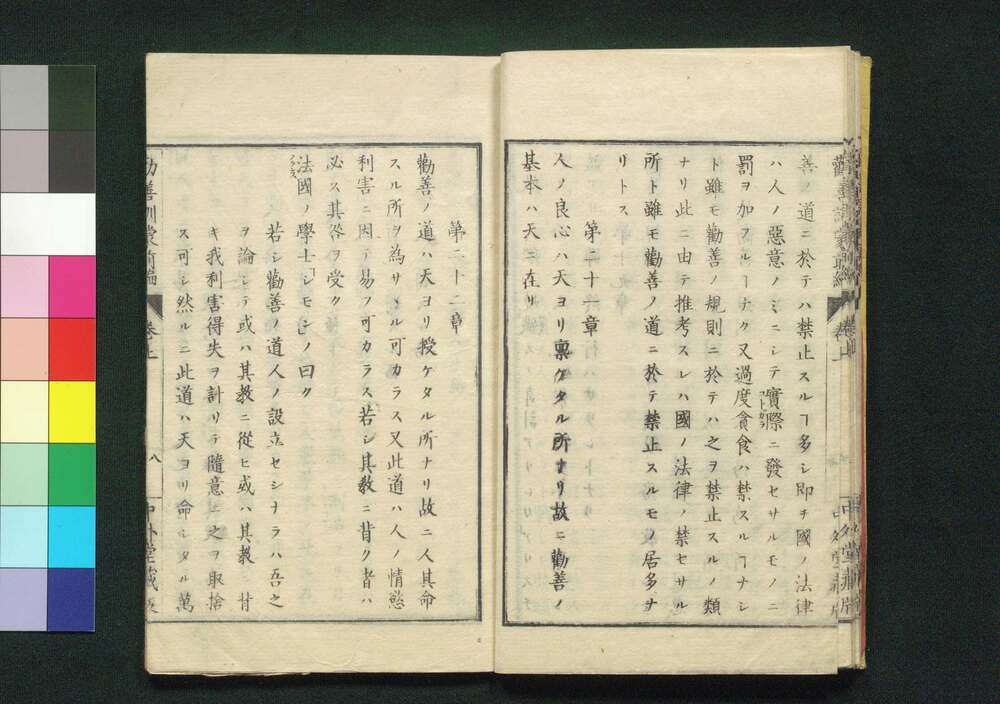 善ノ道ニ於テハ禁止スルヿ多シ即チ國ノ法律
ハ人ノ惡意ノミニシテ實際ニ發セサルモノニ
罰ヲ加フルヿナク又過度貪食ハ禁スルヿナシ
ト雖モ勸善ノ規則ニ於テハ之ヲ禁止スルノ類
ナリ此ニ由テ推考スレハ國ノ法律ノ禁セサル
所ト雖モ勸善ノ道ニ於テ禁止スルモノ居多ナ
リトス
第二十一章
人ノ良心ハ天ヨリ禀ケタル所ナリ故ニ勸善ノ
基本ハ天ニ在リ
第二十二章
勸善ノ道ハ天ヨリ授ケタル所ナリ故ニ人其命
スル所ヲ為サヽル可カラス又此道ハ人ノ情慾
利害ニ因テ易フ可カラス若シ其教ニ背ク者ハ
必ス其咎ヲ受ク
法國ノ學士「シモン」ノ曰ク
若シ勸善ノ道人ノ設立セシナラハ吾之
ヲ論シテ或ハ其教ニ從ヒ或ハ其教ニ背
キ我利害得失ヲ計リテ隨意ニ之ヲ取捨
ス可シ然ルニ此道ハ天ヨリ命シタル萬
勸善訓蒙前編
卷上
八
中外堂藏版